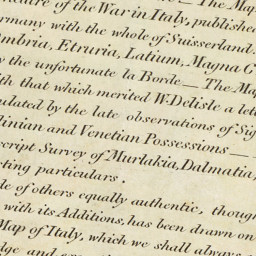 of the War in Italy, published
rmany with the whole of Suisserland.
mbria, Etruria, Latium, Magna G
y the unfortunate la Borde — The Map
th that which merited W. Delisle a let
ulated by the late observations of Sig
tinian and Venetian Possessions —
script Survey of Murlakia, Dalmatia,
ting particulars.
de of others equally authentic, though
with its Additions, has been drawn on
Map of Italy, which we shall always